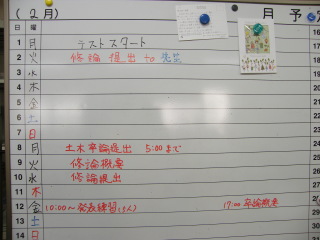 (2月) 月 予
日 曜
1 月 テストスタート
2 火 修論 提出 to 先生
3 水
4 木
5 金
6 土
7 日
8 月 土木卒論提出 5:00まで
9 火 修論概要
10 水 修論提出
11 木
12 金 10:00~発表練習(5人) 17:00 卒論概要
13 土
14 日
16
17